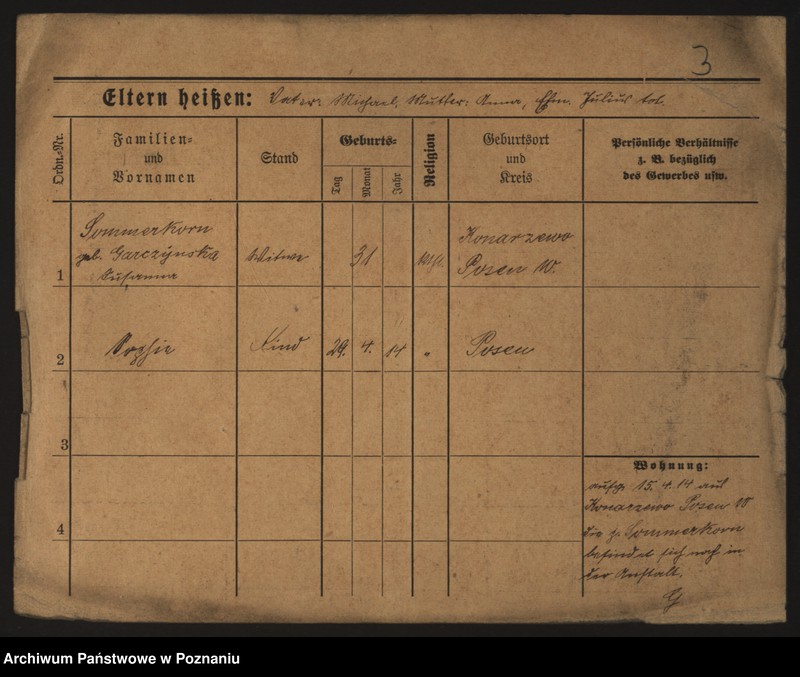 3
Eltern heißen: Vater: Michael, Mutter: Anna, Ehm. Julius tot.
Ordn.-Nr.
Familien-
und
Vornamen
Stand
Geburts-
Tag
Monat
Jahr
Religion
Geburtsort
und
Kreis
Persönliche Verhältnisse
z. B. bezüglich
des Gewerbes usw.
1
Sommerkorn
geb. Garczynska
Susanna
Witwe
31
Konarzewo
Posen W.
2
Sophie
Kind
29. 4. 14
"
Posen
3
4
Wohnung:
15. 4. 14 aus
Konarzewo Posen W
die p. Sommerkorn
befindet sich noch in
der Anstalt.
G
Archiwum Państwowe w Poznaniu